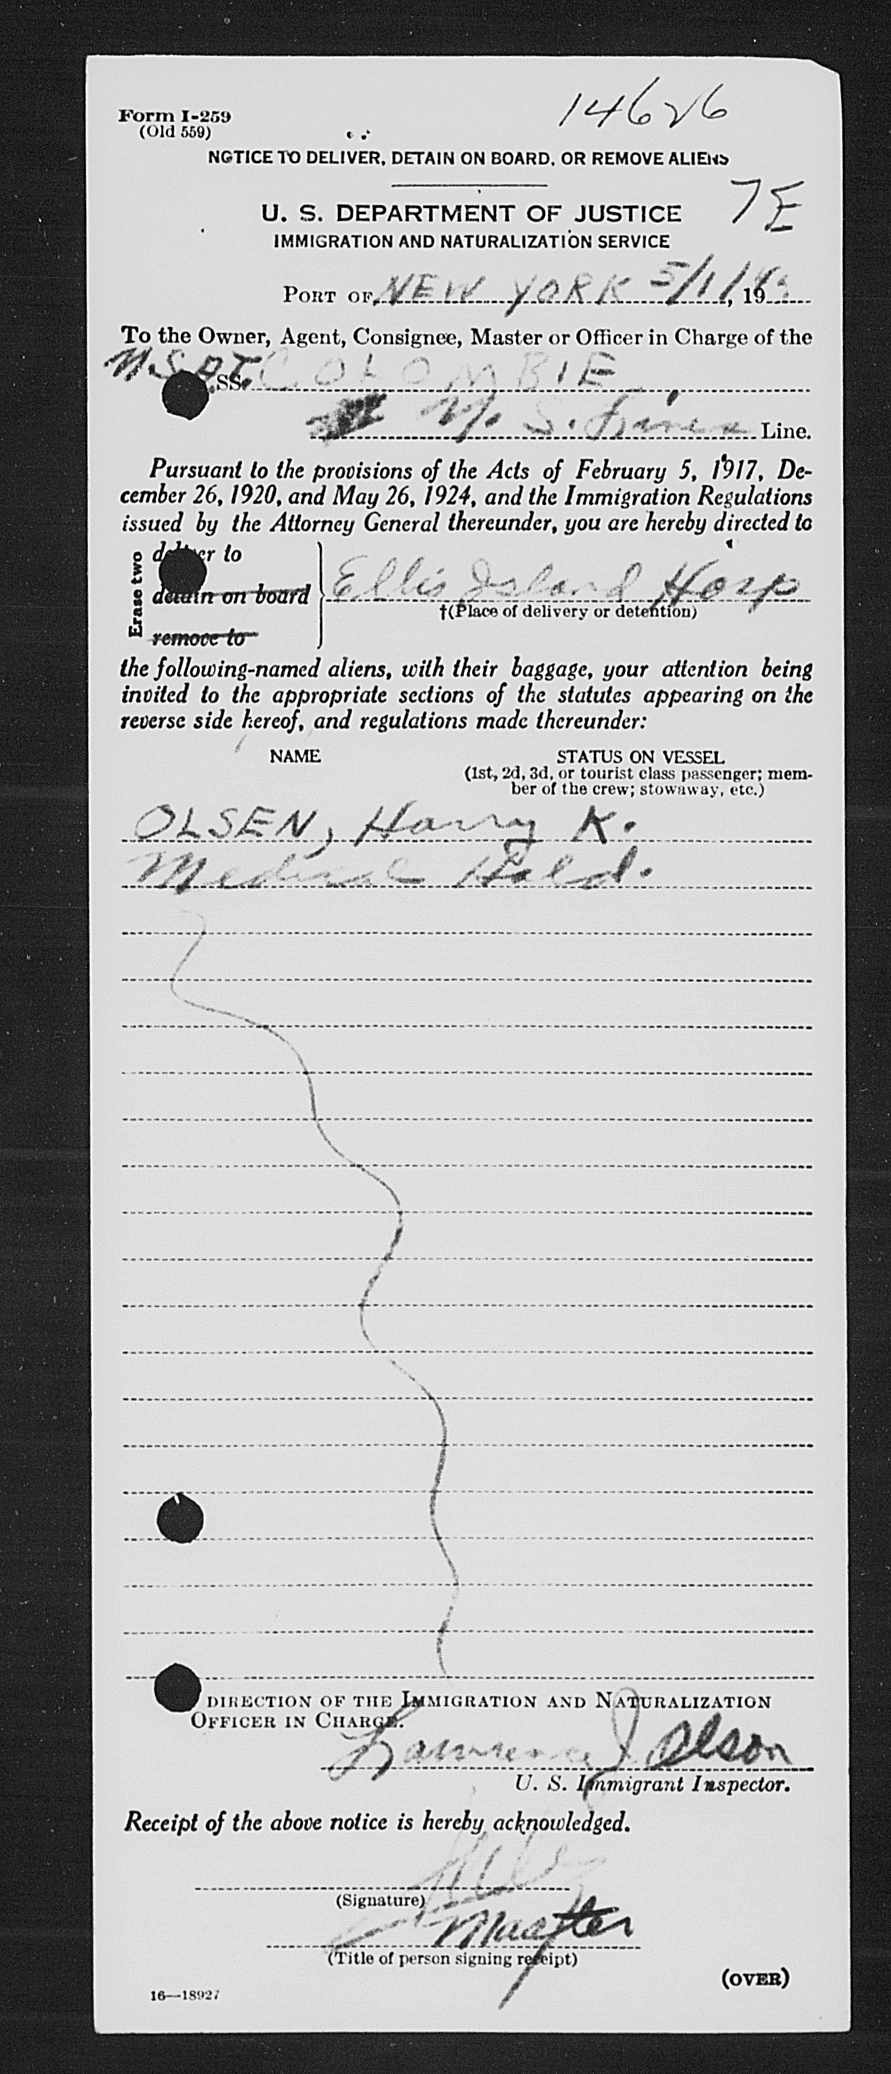 Form I-259
(Old 559)
14626
NOTICE TO DELIVER, DETAIN ON BOARD, OR REMOVE ALIENS
7E
U. S. DEPARTMENT OF JUSTICE
IMMIGRATION AND NATURALIZATION SERVICE
PORT OF NEW YORK 5/1/, 19
To the Owner, Agent, Consignee, Master or Officer in Charge of the
SS. COLOMBIE
Line.
Pursuant to the provisions of the Acts of February 5, 1917, De-
cember 26, 1920, and May 26, 1924, and the Immigration Regulations
issued by the Attorney General thereunder, you are hereby directed to
Erase two
deliver to
detain on board
remove to
Ellis Island Hosp
†(Place of delivery or detention)
the following-named aliens, with their baggage, your attention being
invited to the appropriate sections of the statutes appearing on the
reverse side hereof, and regulations made thereunder:
NAME STATUS ON VESSEL
(1st, 2d, 3d, or tourist class passenger; mem-
ber of the crew; stowaway, etc.)
OLSEN, Harry K.
Medical Hold.
DIRECTION OF THE IMMIGRATION AND NATURALIZATION
OFFICER IN CHARGE.
Lawrence J Olson
U. S. Immigrant Inspector.
Receipt of the above notice is hereby acknowledged.
(Signature)
Master
(Title of person signing receipt)
(OVER)
16—18927